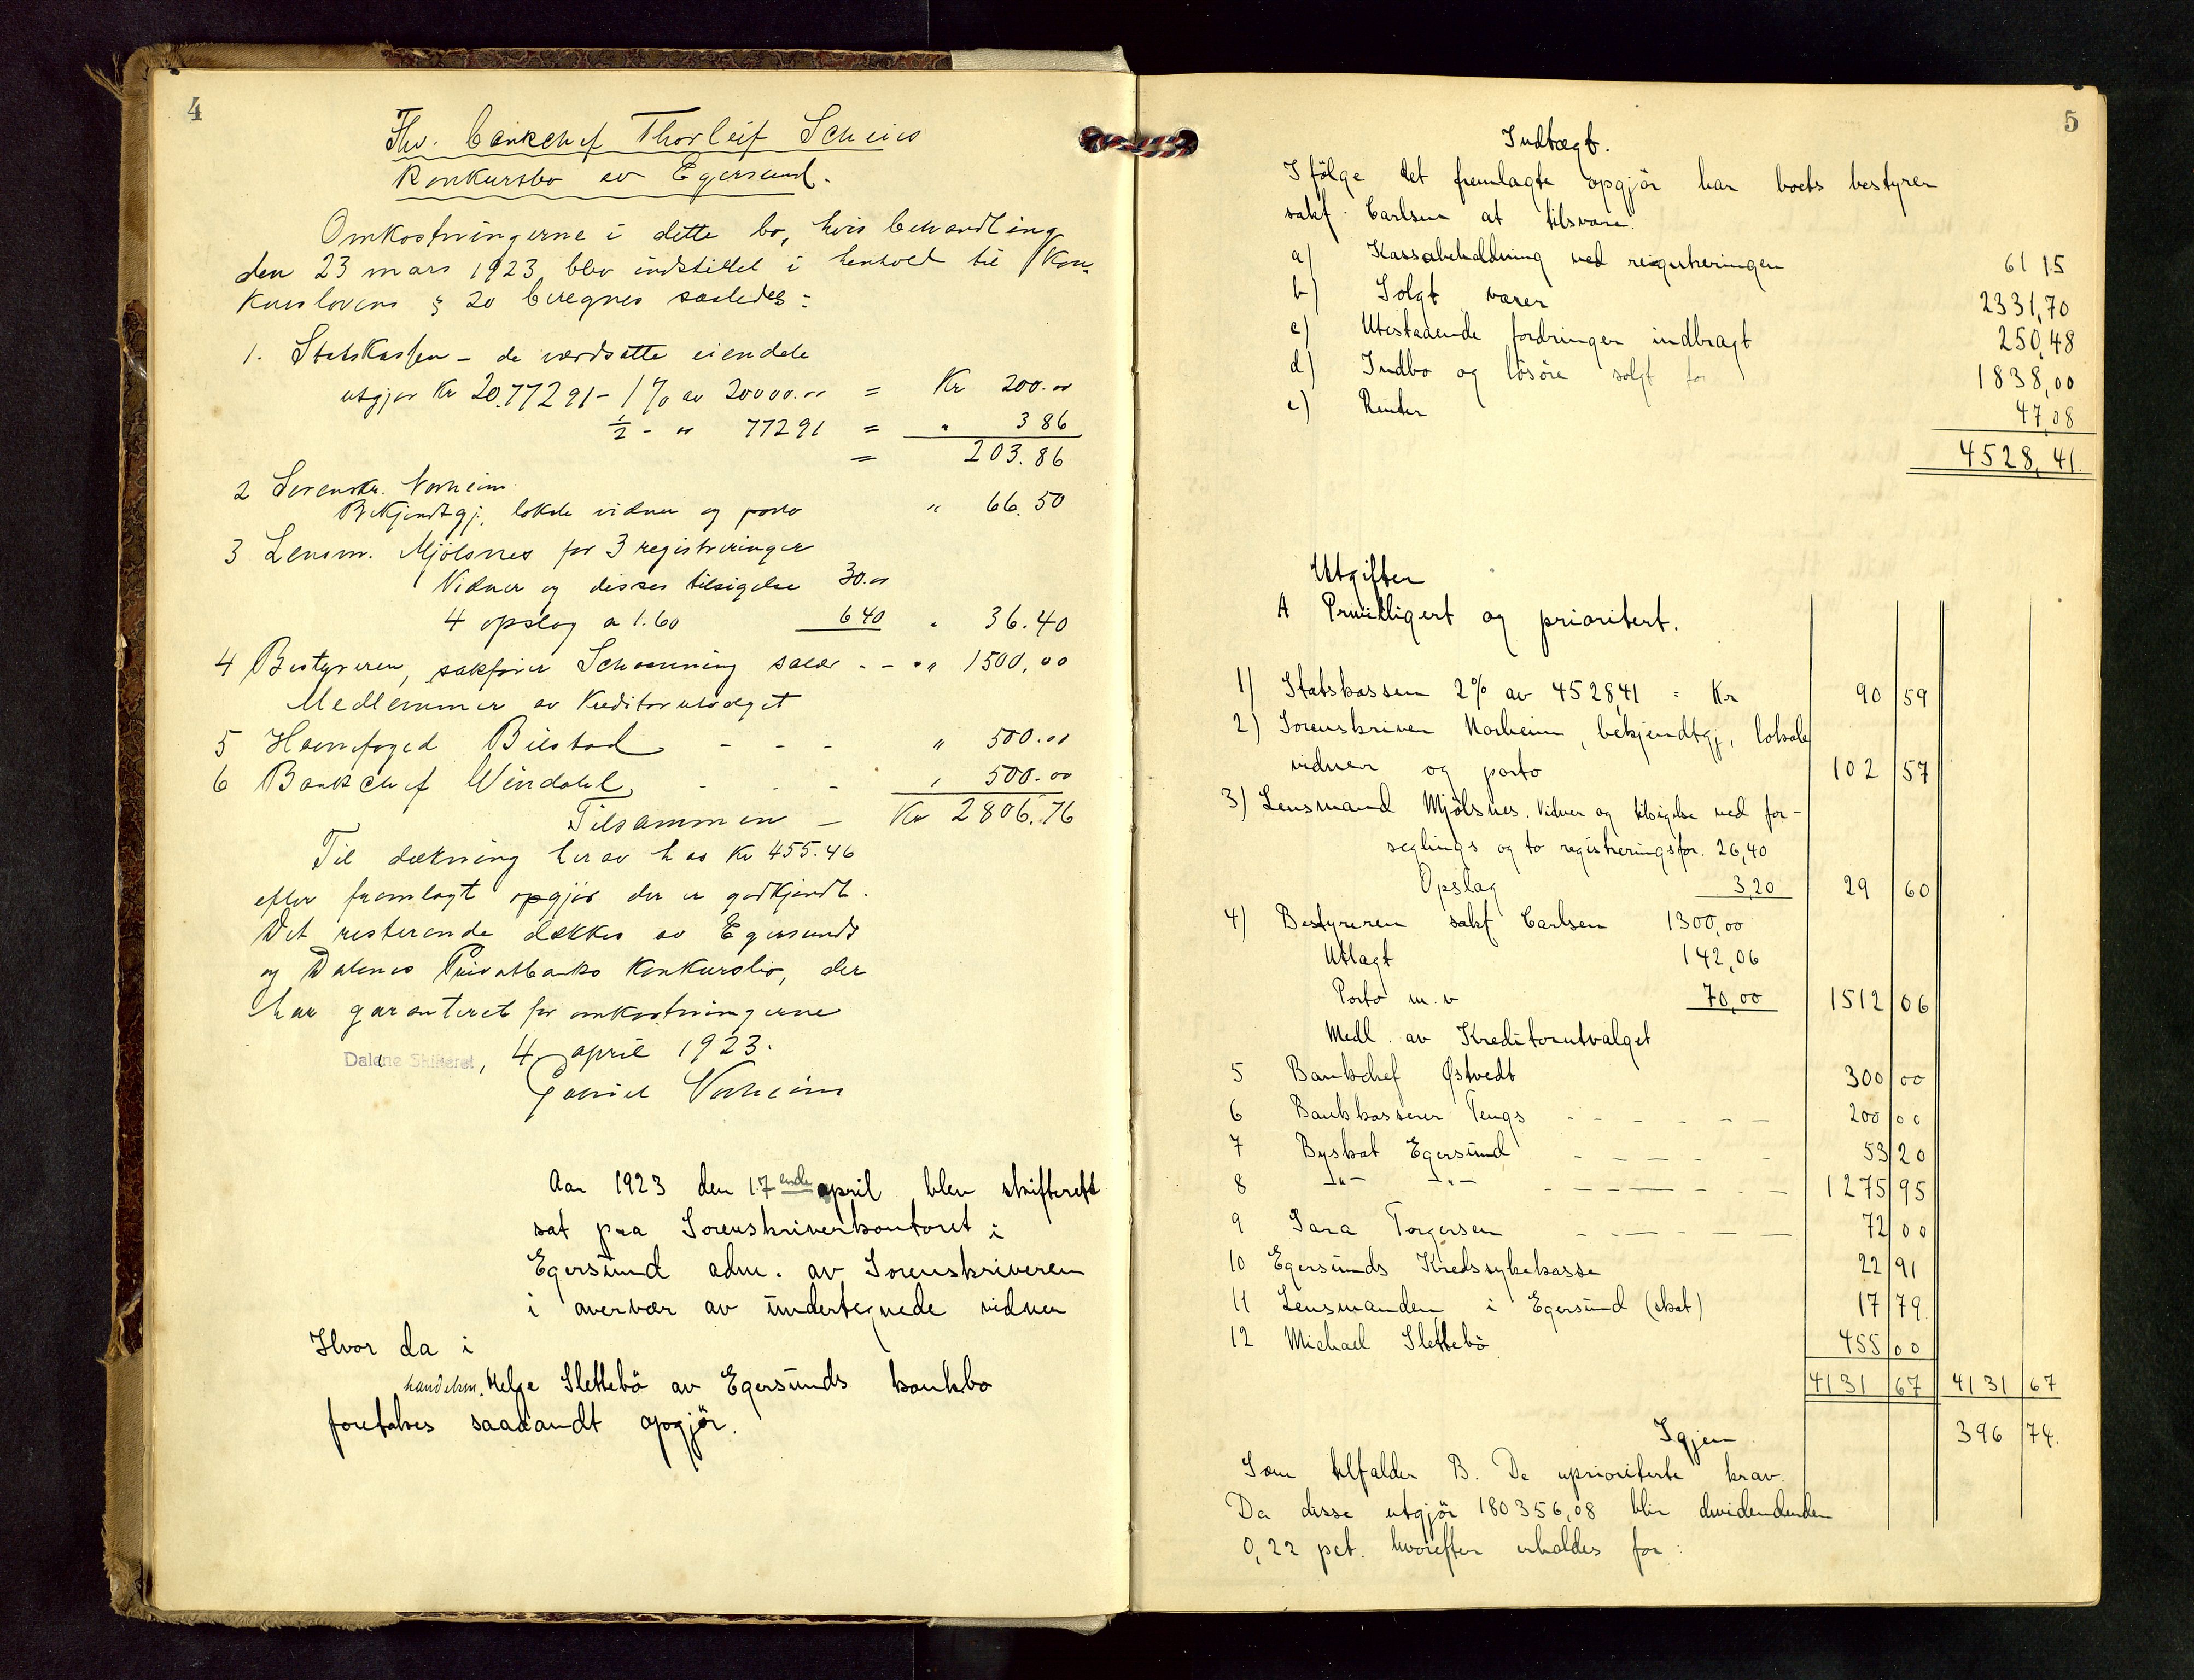 4
Thv. bankchef Thorleif Scheies
Konkursbo av Egersund.
Omkostningerne i dette bo, hvis behandling
den 23 mars 1923 blev indstillet i henhold til Kon-
kurslovens § 20 beregnes saaledes:
1. Statskassen - de værdsatte eiendele
utgjør Kr 20.77291 - 1% av 20000.00 = Kr 200.00
½ - " 77291 = " 3 86
= 203.86
2 Sorenskr. Norheim
Bekjendtgj., lokale vidner og porto " 66.50
3 Lensm. Mjølsnes for 3 registreringer
Vidner og disses tilsigelse 30.00
4 opslag a 1.60 640 " 36.40
4 Bestyreren, sakfører Schanning salær - - " 1500,00
Medlemmer av Kreditorutvalget
5 Havnefoged Bilstad - - - " 500.00
6 Bankchef Windahl - - - " 500.00
Tilsammen - Kr 2806.76
Til dækning herav has Kr 455.46
efter fremlagt opgjør der er godkjendt.
Det resterende dækkes av Egersunds
og Dalenes Privatbanks Konkursbo, der
har garanteret for omkostningerne
Dalene Skifteret, 4 april 1923.
Gabriel Norheim
Aar 1923 den 17ende april blev skifterett
sat paa Sorenskriverkontoret i
Egersund adm. av Sorenskriveren
i overvær av undertegnede vidner
Hvor da i
handelsm. Helge Slettebö av Egersunds konk.bo
foretakes saaaandt opgjör.
5
Indtægt.
I følge det fremlagte opgjör har boets bestyrer
sakf. Carlsen at tilsvare.
a) Kassabeholdning ved registreringen 61 15
b) Solgt varer 2331,70
c) Utestaaende fordringer indbragt 250,48
d) Indbo og lösöre solgt for 1838,00
e) Renter 47,08
4528,41.
Utgifter
A Privilligert og prioritert.
1) Statskassen 2% av 4528,41 = Kr 90 59
2) Sorenskriver Norheim, bekjendtgj, lokale
vidner og porto 102 57
3) Lensmand Mjölsnes. Vidner og tilsigelse ved for-
seglings og to registreringsfor. 26,40
Opslag 3,20 29 60
4) Bestyreren sakf Carlsen 1300,00
Utlagt 142,06
Porto m.v 70,00 1512 06
Medl. av Kreditorutvalget
5 Bankchef Østvedt 300 00
6 Bankkasserer Tengs - - - - - - 200 00
7 Byskat Egersund - - - - - 53 20
8 -"- -"- - - - - - - 1275 95
9 Sara Torgersen - - - - - 72 00
10 Egersunds Kredssykekasse 22 91
11 Lensmanden i Egersund (skat) 17 79.
12 Michael Slettebö 455 00
4131 67 4131 67
Igjen 396 74.
Som tilfalder B. De uprioriterte krav.
Da disse utgjör 180356,08 blir dividendenden
0,22 pct. hvorefter erholdes for: